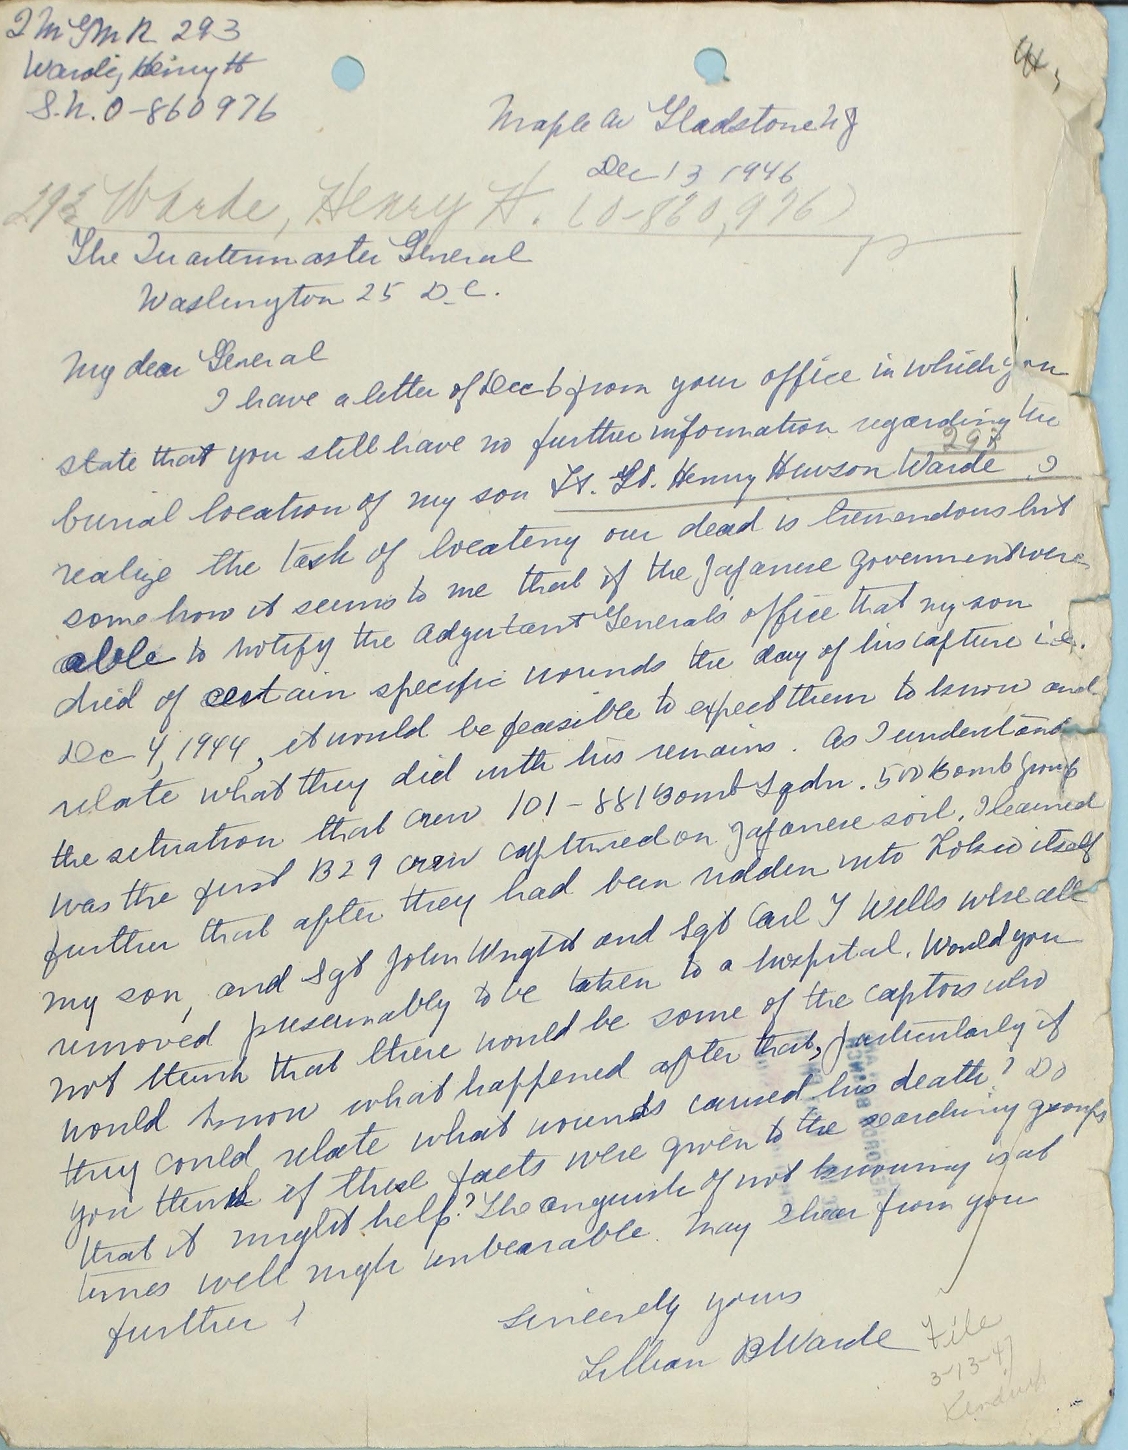 QMGMR 293
Warde, Henry H
S.N. O-860976
Maple Av Gladstone NJ
Dec 13 1946
293 Warde, Henry H. (O-860,976)
The Quartermaster General
Washington 25 D.C.
My dear General
I have a letter of Dec 6 from your office in which you
state that you still have no further information regarding the
293
burial location of my son Lt. Henry Hewson Warde I
realize the task of locating our dead is tremendous but
some how it seems to me that if the Japanese government were
able to notify the Adjutant Generals office that my son
died of certain specific wounds the day of his capture i.e.
Dec 4, 1944, it would be feasible to expect them to know and
relate what they did with his remains. As I understand
the situation that crew 101 - 881 Bomb Sqdn. 500 Bomb Group
was the first B29 crew captured on Japanese soil. I learned
further that after they had been ridden into Tokio itself
my son, and Sgt John Wright and Sgt Carl T Wells were all
removed presumably to be taken to a hospital. Would you
not think that there would be some of the captors who
would know what happened after that, particularly if
they could relate what wounds caused his death? Do
you think if these facts were given to the searching groups
that it might help? The anguish of not knowing is at
times well nigh unbearable. May I hear from you
further?
Sincerely yours
Lillian B Warde
File
3-13-47